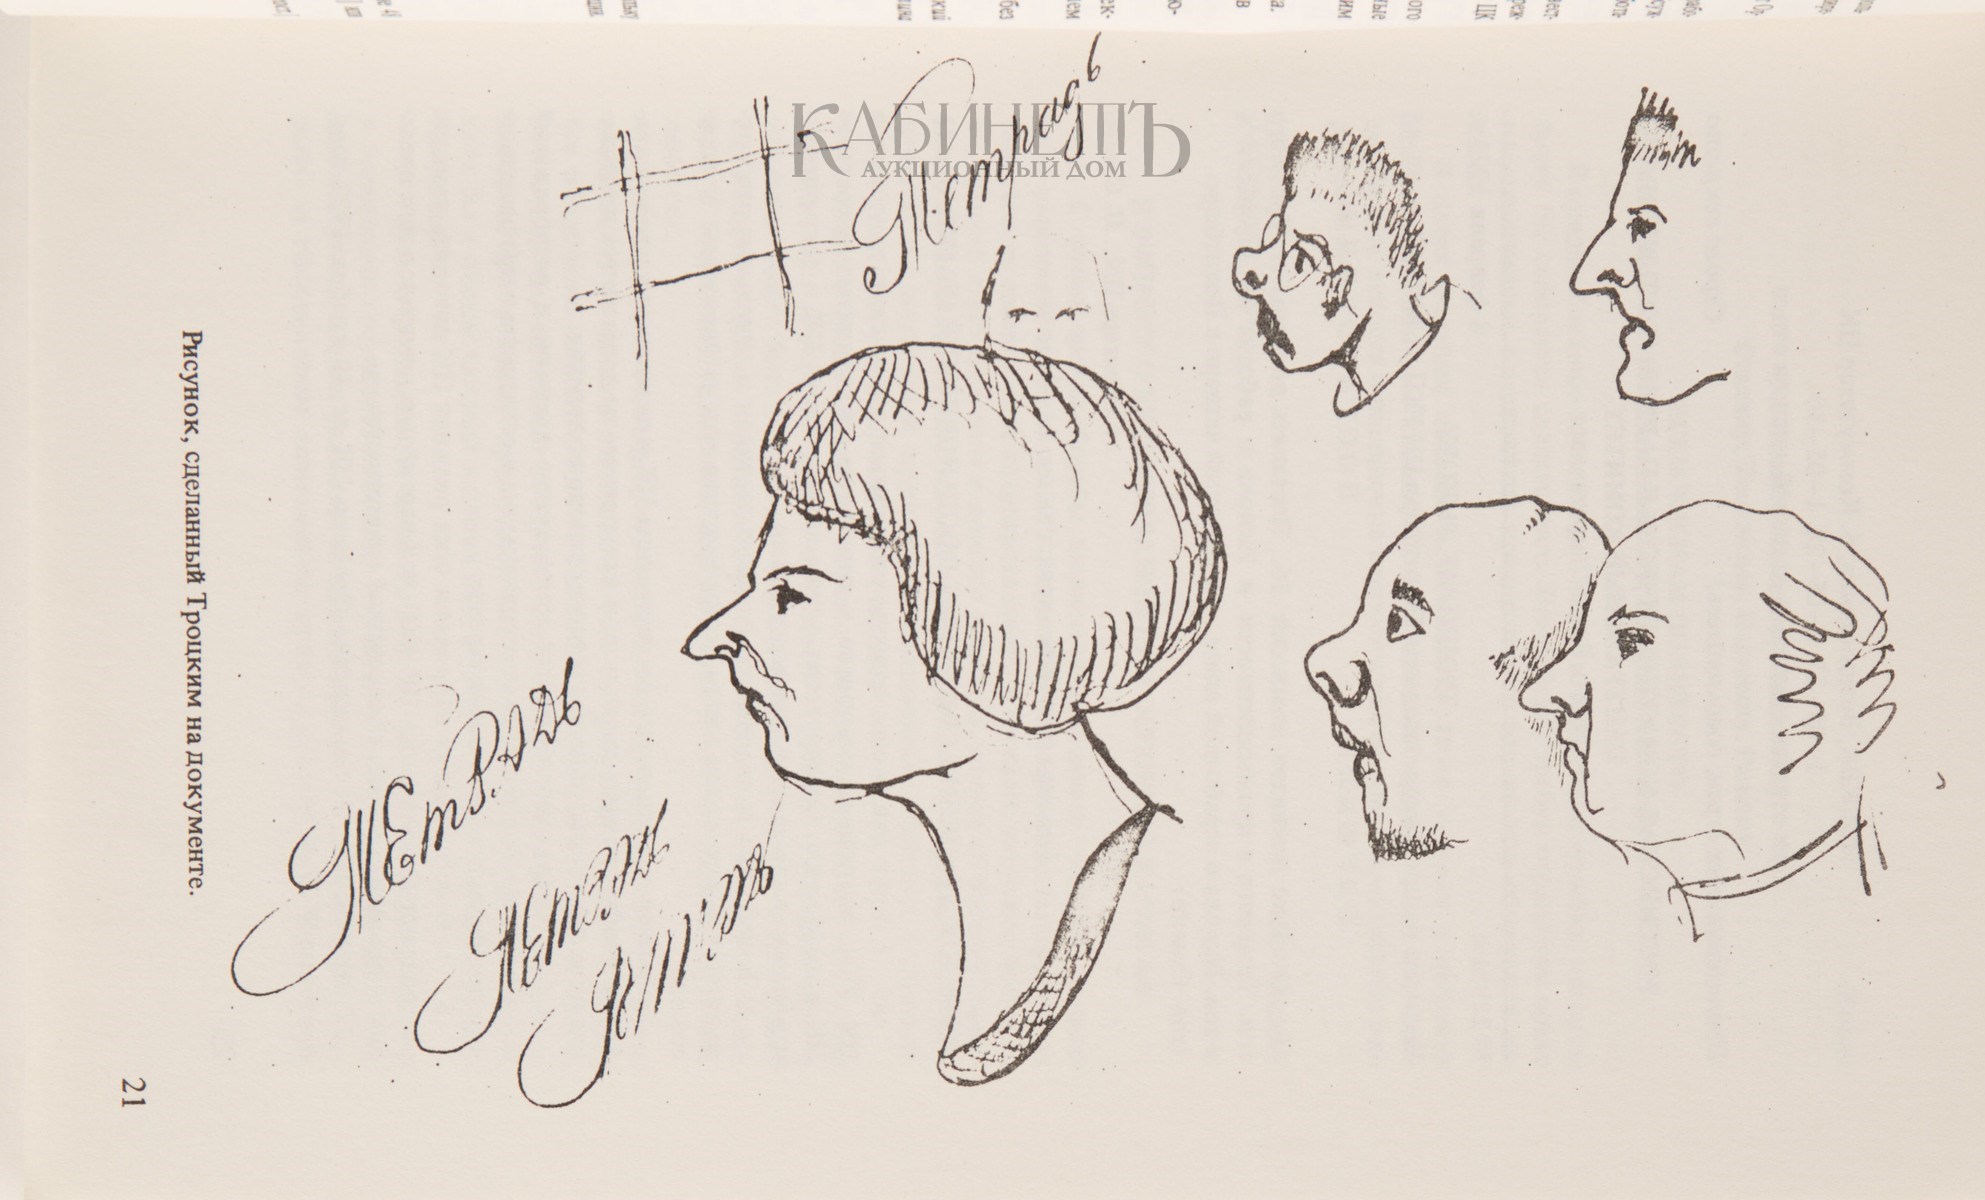 КАБИНЕТЪ
АУКЦИОННЫЙ ДОМ
Тетрадь
Рисунок, сделанный Троцким на документе.
ТЕтрадь
ТЕтрадь
Тетрадь
21